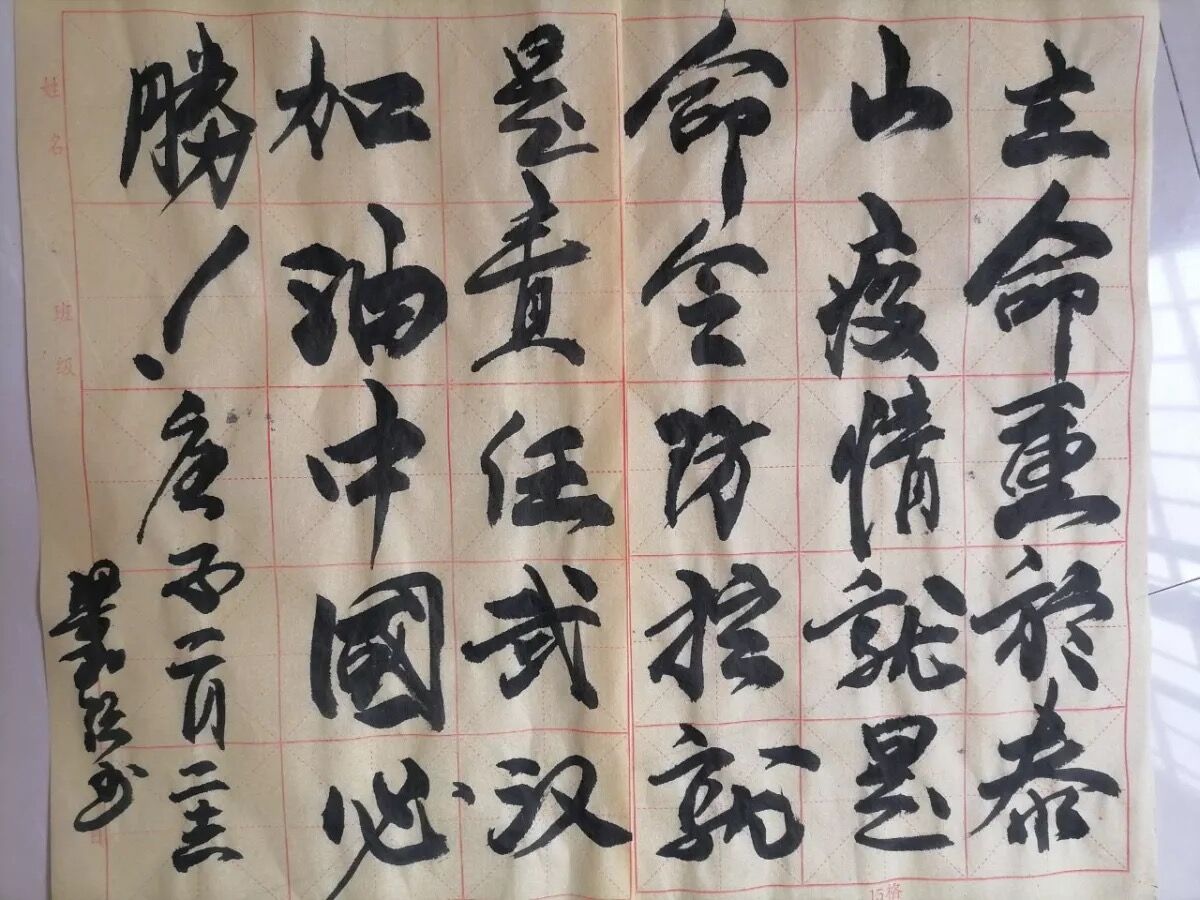 生命重於泰
山疫情就是
命令防控就
是責任武汉
加油中國必
勝！庚子二月二
姓名
班级
15格